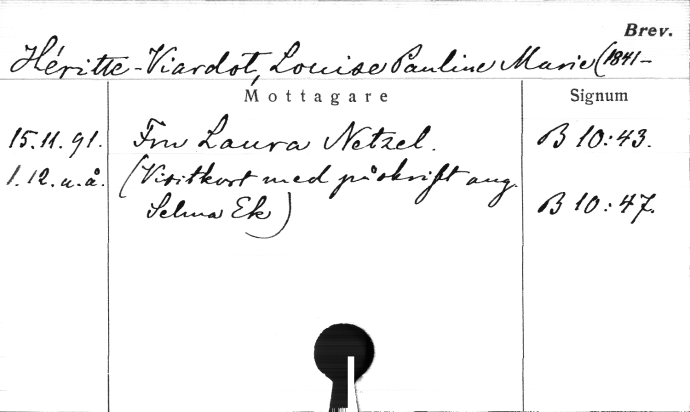 Brev.
Héritte-Viardot, Louise Pauline Marie (1841-
Mottagare Signum
15.11.91. Fru Laura Netzel. B 10:43.
1.12.u.å. (Visitkort med påskrift ang.
Selma Ek) B 10:47.